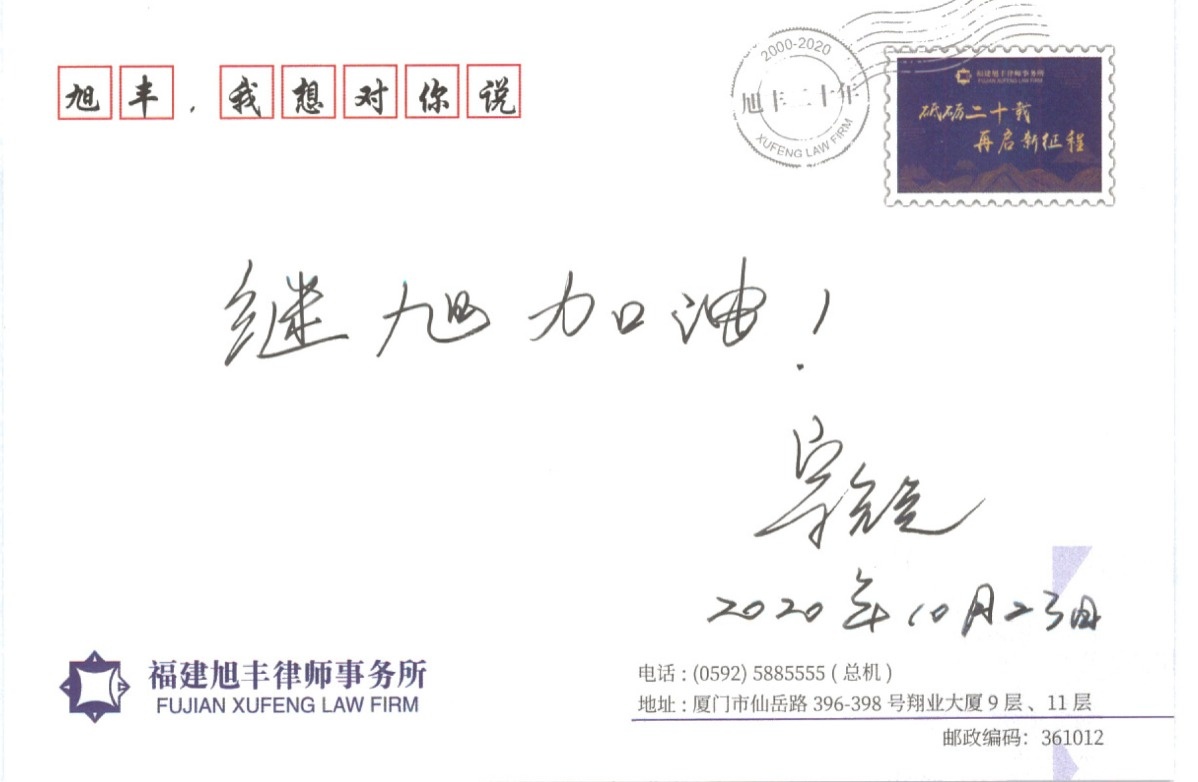 旭丰，我想对你说
2000-2020
旭丰二十年
XUFENG LAW FIRM
福建旭丰律师事务所
FUJIAN XUFENG LAW FIRM
砥砺二十载
再启新征程
继旭加油！
2020年10月23日
福建旭丰律师事务所
FUJIAN XUFENG LAW FIRM
电话：(0592) 5885555 ( 总机 )
地址：厦门市仙岳路 396-398 号翔业大厦 9 层、11 层
邮政编码：361012